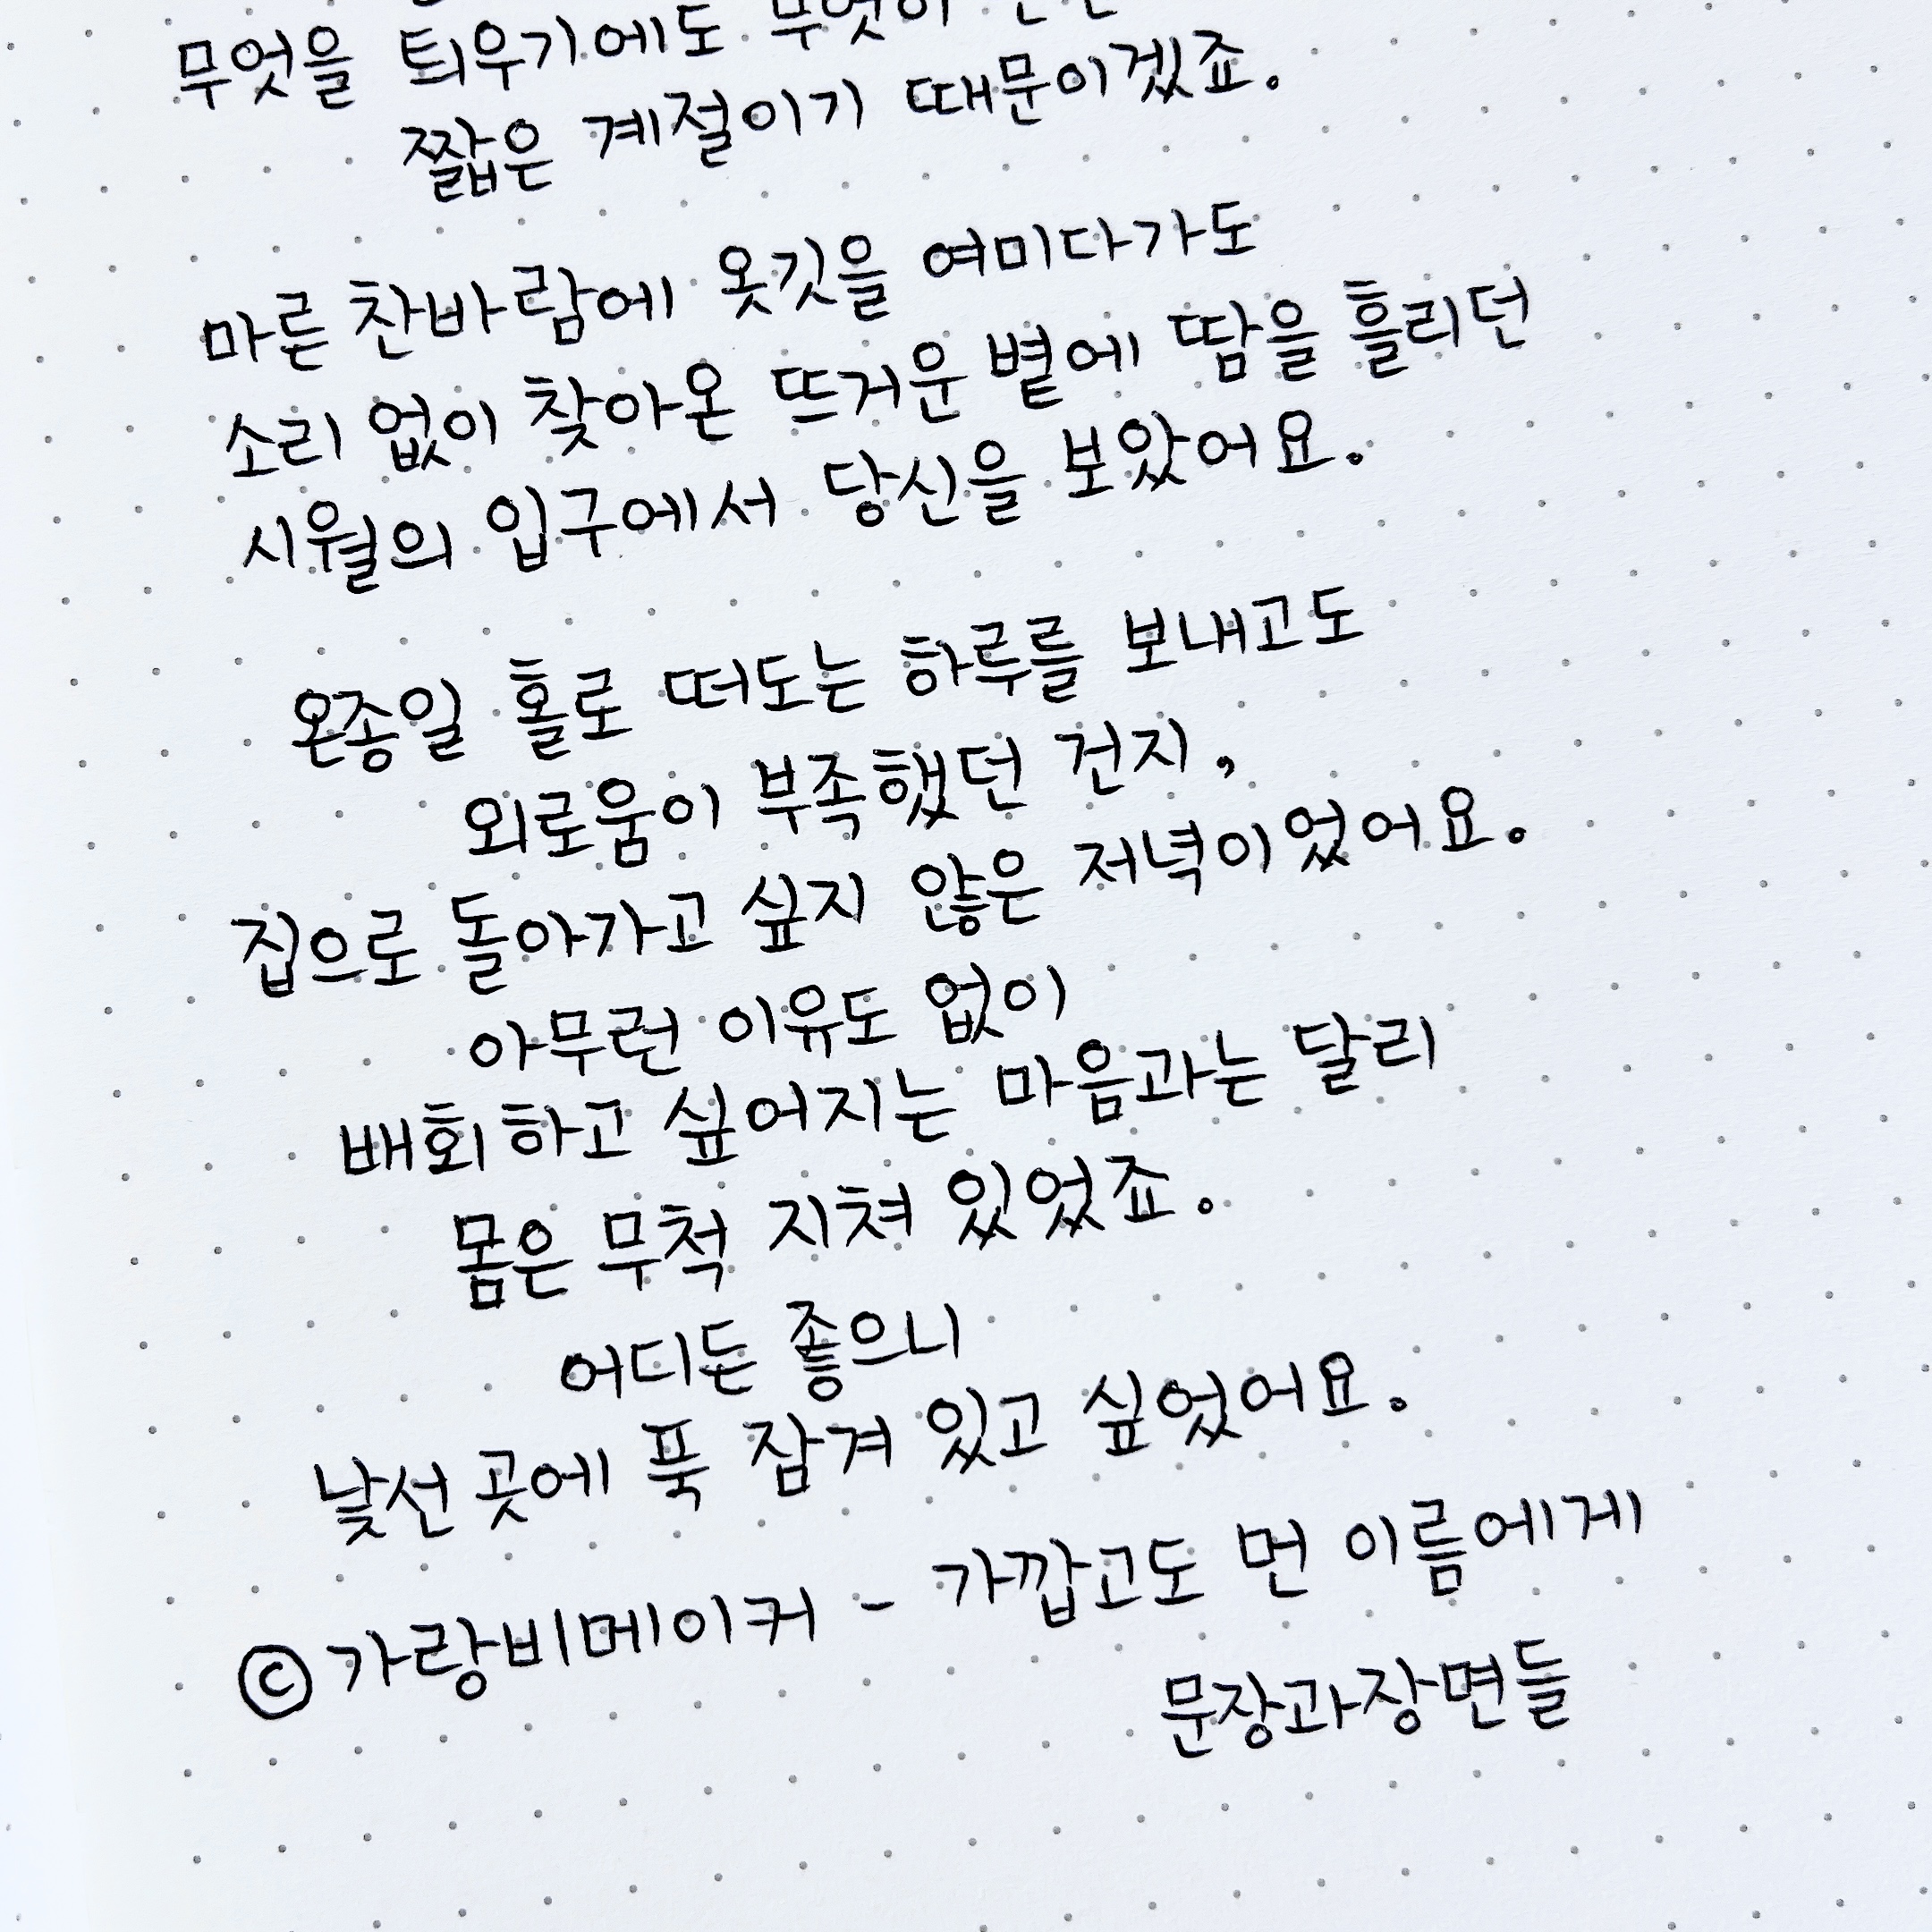 무엇을 틔우기에도 무엇이
짧은 계절이기 때문이겠죠.
마른 찬바람에 옷깃을 여미다가도
소리 없이 찾아온 뜨거운 볕에 땀을 흘리던
시월의 입구에서 당신을 보았어요.
온종일 홀로 떠도는 하루를 보내고도
외로움이 부족했던 건지,
집으로 돌아가고 싶지 않은 저녁이었어요.
아무런 이유도 없이
배회하고 싶어지는 마음과는 달리
몸은 무척 지쳐 있었죠.
어디든 좋으니
낯선 곳에 푹 잠겨 있고 싶었어요.
© 가랑비메이커 - 가깝고도 먼 이름에게
문장과장면들